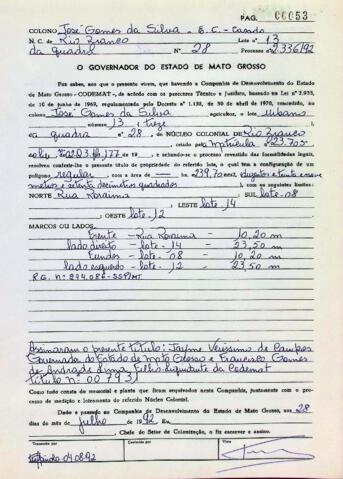 PAG. 00053
COLONO José Gomes da Silva - B.C. - Casado
N. C. de Rio Branco Lote n.º 13
da quadra N.º 28 Processo n.º 2336/92
O GOVERNADOR DO ESTADO DE MATO GROSSO
Faz saber, aos que o presente virem, que havendo a Companhia de Desenvolvimento do Estado
de Mato Grosso - CODEMAT -, de acordo com os pareceres Técnico e Jurídico, baseado na Lei n.º 2.933,
de 10 de junho de 1969, regulamentada pelo Decreto n.º 1.138, de 30 de abril de 1970, concedido, ao
colono José Gomes da Silva agricultor, o lote urbano
número 13 (treze
da quadra n.º 28, do NÚCLEO COLONIAL DE Rio Branco
criado pela Matrícula n.º 23.705
177 e o processo revestido das formalidades legais,
resolveu conferir-lhe o presente título de propriedade do referido lote, o qual tem a configuração de um
polígono regular, com a área de — ha 239,70 (duzentos e trinta e nove
metros e setenta decímetros quadrados), com os seguintes limites:
NORTE Rua Roraima SUL lote-08
LESTE lote 14
OESTE lote-12
MARCOS OU LADOS
Frente - Rua Roraima - 10,20 m
lado direito - lote - 14 - 23,50 m
fundos - lote - 08 - 10,20 m
lado esquerdo - lote - 12 - 23,50 m
R.G. nº 894.086-SSP/MT.
Assinaram o presente título: Jayme Veríssimo de Campos
Governador do Estado de Mato Grosso e Francisco Gomes
de Andrade Lima Filho-Liquidante da Codemat
título nº 00793)
Como tudo consta do memorial e planta que ficam arquivados nesta Companhia, juntamente com o pro-
cesso de medição e loteamento do referido Núcleo Colonial.
Dado e passado na Companhia de Desenvolvimento do Estado de Mato Grosso, aos 28
dias do mês de julho de 1992 Eu,
, Chefe do Setor de Colonização, o fiz escrever e assino.
Transcrito por
Conferido por
Visto
04.08.92